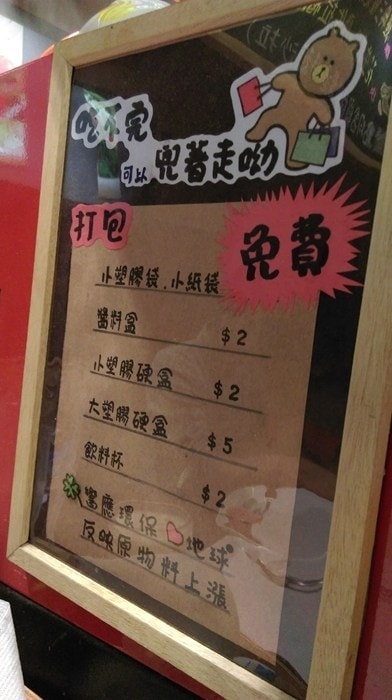 吃不完
可以 兜著走呦
打包
免費
小塑膠袋.小紙袋
醬料盒 $2
小塑膠硬盒 $2
大塑膠硬盒 $5
飲料杯 $2
響應環保 地球
反映原物料上漲